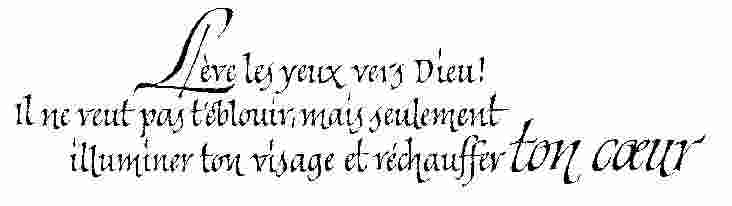 Lève les yeux vers Dieu!
Il ne veut pas t'éblouir, mais seulement
illuminer ton visage et réchauffer ton cœur